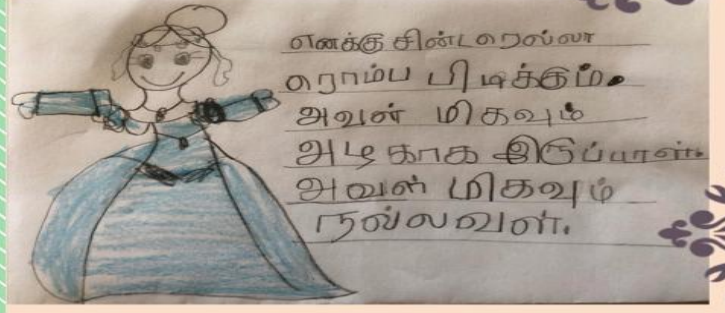 எனக்கு சின்டரெல்லா
ரொம்ப பிடிக்கும்.
அவள் மிகவும்
அழகாக இருப்பாள்.
அவள் மிகவும்
நல்லவள்.